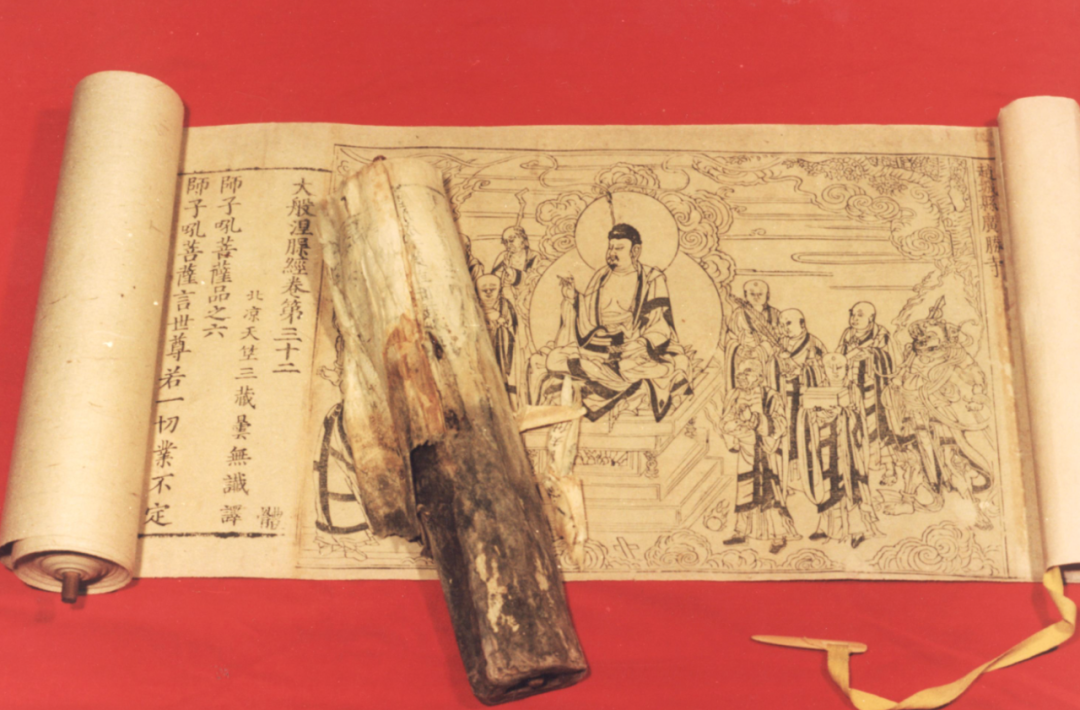 趙城縣廣勝寺
大般涅槃經卷第三十二
北涼天竺三藏曇無讖譯
師子吼菩薩品之六
師子吼菩薩言世尊若一切業不定